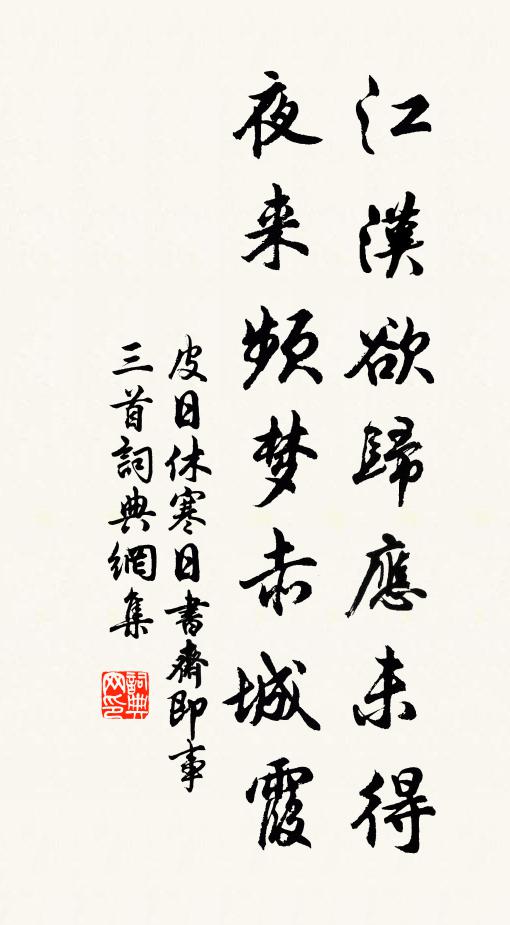 江漢欲歸應未得
夜来頻梦赤城霞
皮日休寒日書齋即事
三首詞典網集
詞典网印